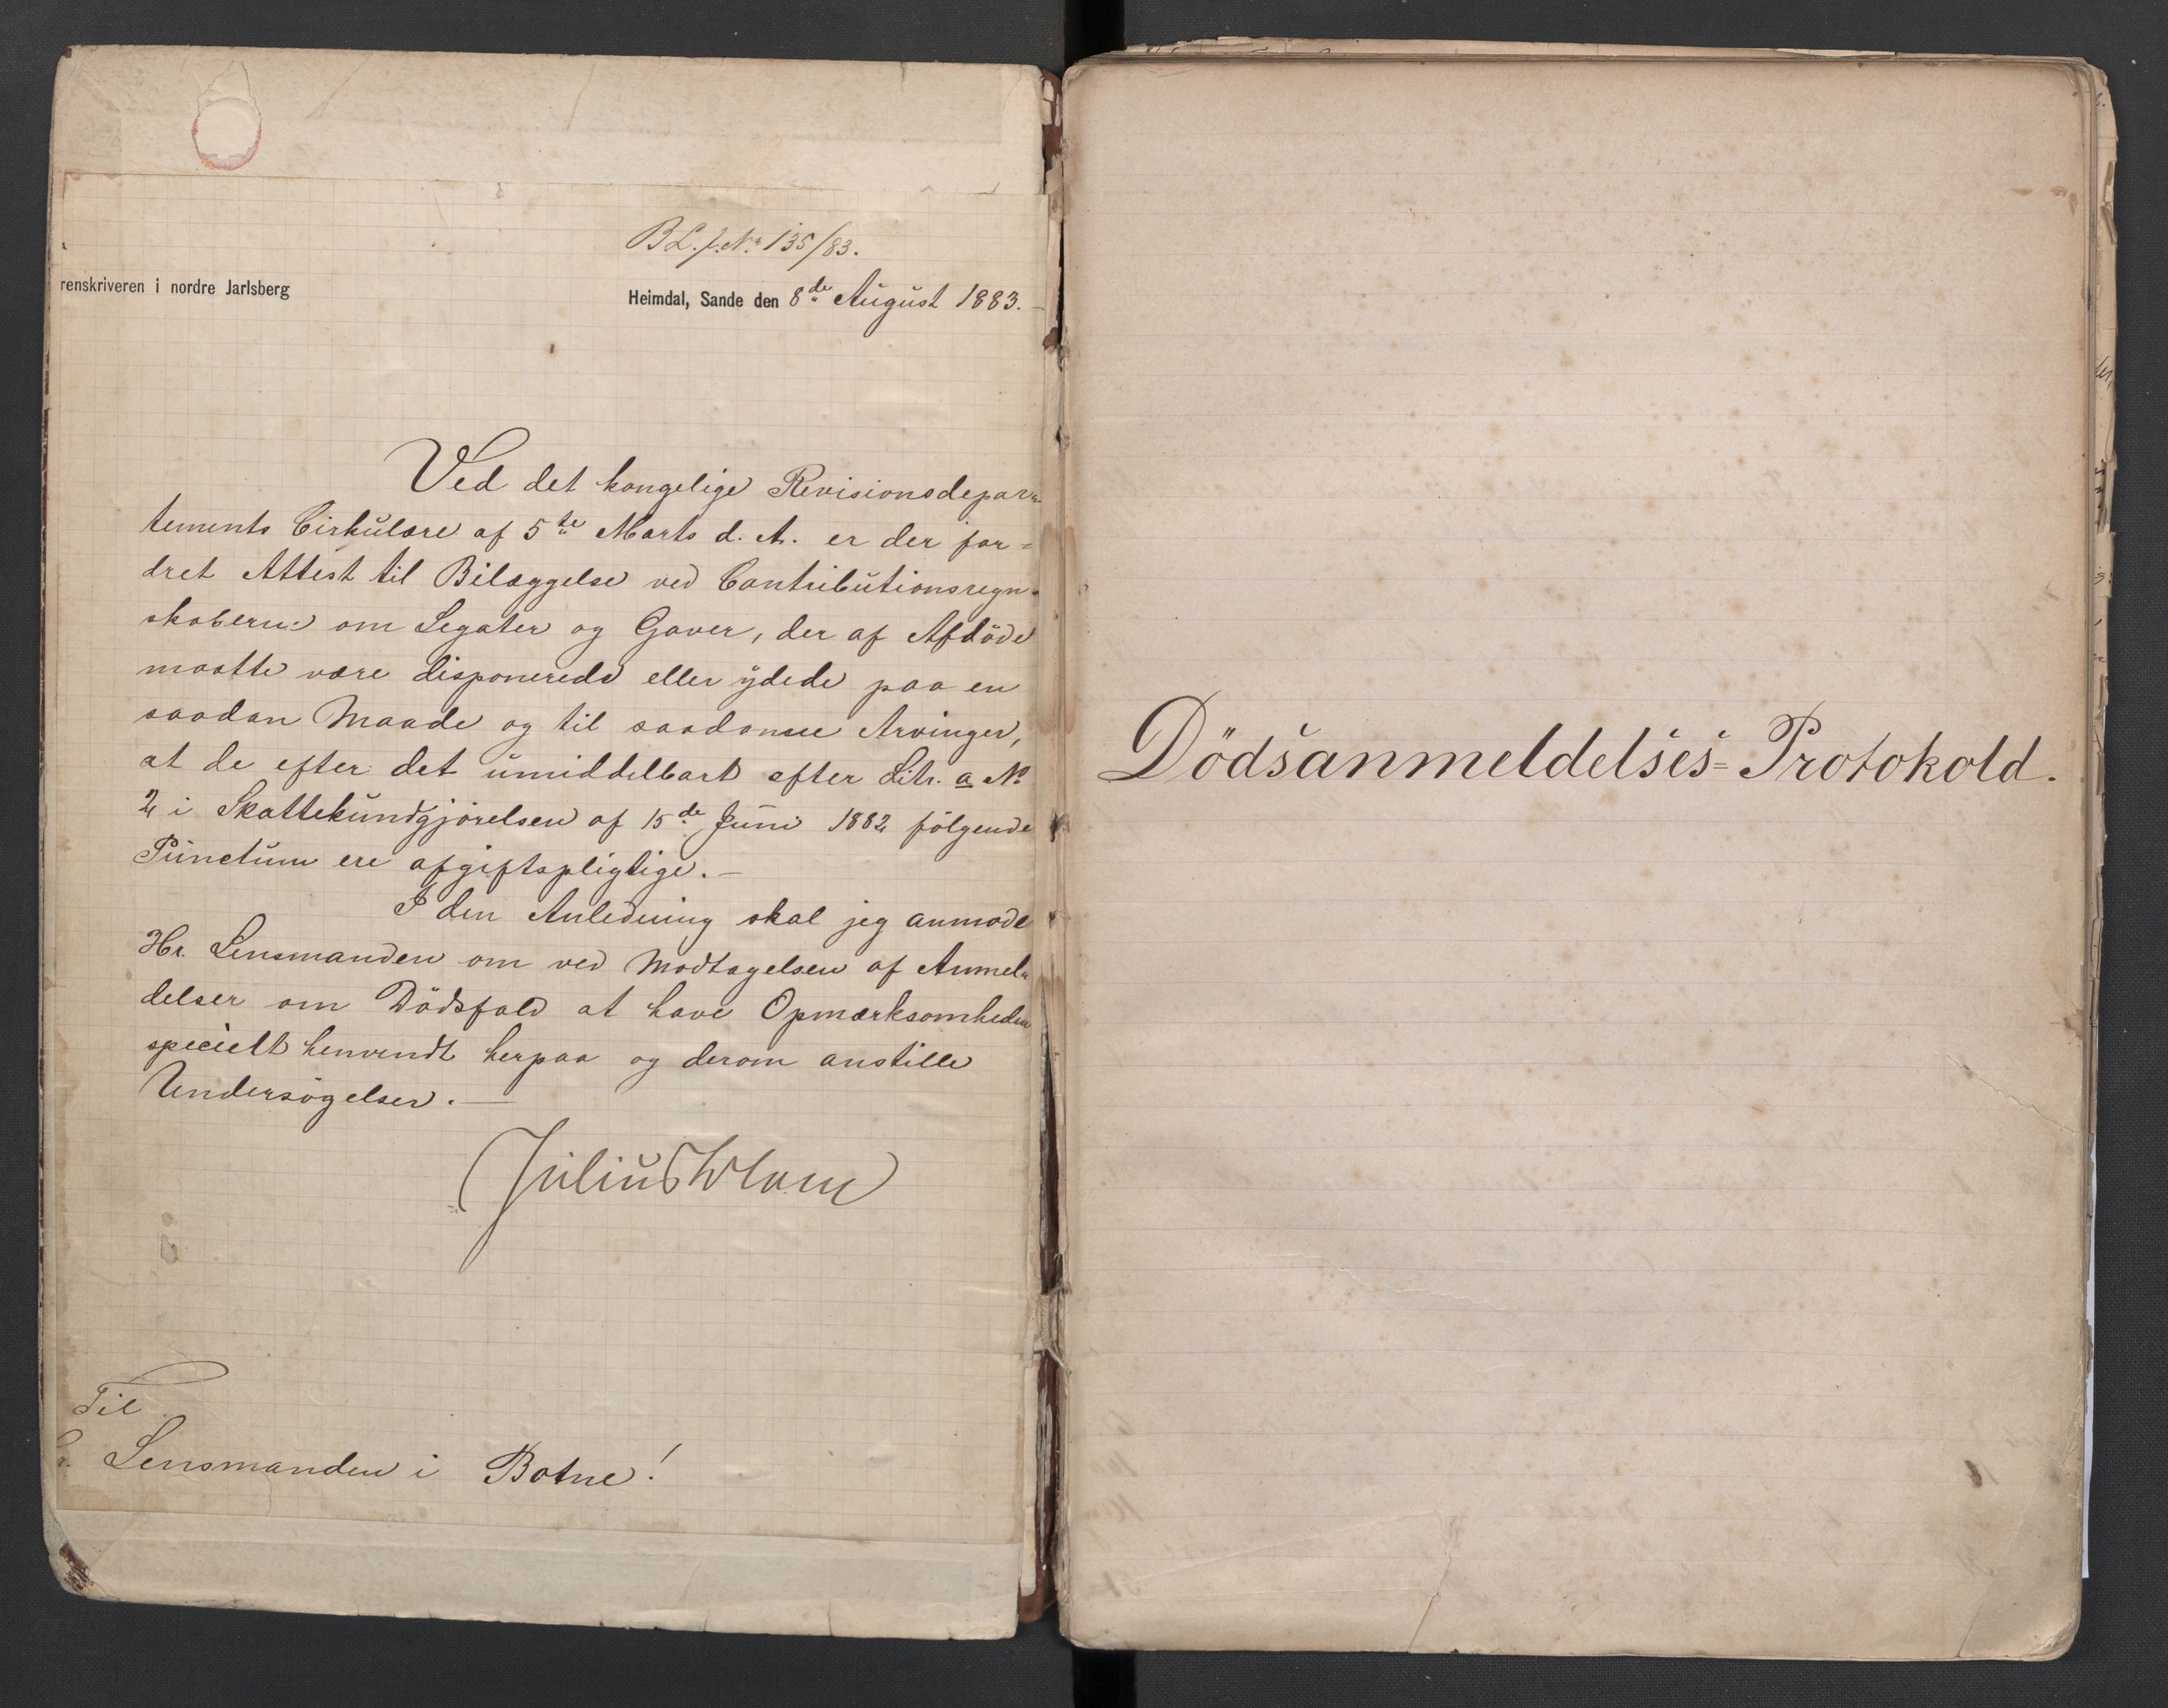 B.L.J.No 135/83.
renskriveren i nordre Jarlsberg
Heimdal, Sande den 8de August 1883.
Ved det kongelige Revisionsdepar-
tements Cirkulære af 5te Marts d. A. er der for=
dret Attest til Bilæggelse ved Contributionsregn-
skaberne om Legater og Gaver, der af Afdöde
maatte være disponerede eller ydede paa en
saadan Maade og til saadanne Arvinger,
at de efter det umiddelbart efter Litr. a No
2 i Skattekundgjörelsen af 15de Juni 1882 fölgende
Punctum ere afgiftspligtige.—
I den Anledning skal jeg anmode
Hr. Lensmanden om ved Modtagelsen af Anmel-
delser om Dödsfald at have Opmærksomheden
specielt henvendt herpaa og derom anstille
Undersögelser.—
Julius
Til
Lensmanden i Botne!
Dödsanmeldelses=Protokold.